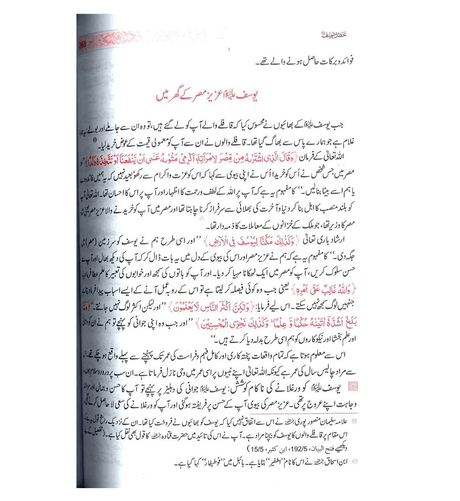 فوائد و برکات حاصل ہونے والے تھے۔
یوسف علیہ السلام عزیز مصر کے گھر میں
جب یوسف علیہ السلام کے بھائیوں نے محسوس کیا کہ قافلے والے آپ کو لے گئے ہیں، تو وہ ان سے جا ملے اور بولے یہ
غلام ہے جو ہمارے پاس سے بھاگ گیا تھا۔ قافلے والوں نے آپ کو معمولی قیمت کے عوض خرید لیا۔
اللہ تعالیٰ کے فرمان ﴿وَقَالَ الَّذِي اشْتَرٰىهُ مِنْ مِّصْرَ لِامْرَاَتِهٖٓ اَكْرِمِيْ مَثْوٰىهُ عَسٰٓى اَنْ يَّنْفَعَنَآ اَوْ نَتَّخِذَهٗ وَلَدًا﴾
میں جس شخص نے اُس کو خریدا اُس نے اپنی بیوی سے کہا کہ اس کو عزت و اکرام سے رکھو بعید نہیں کہ یہ ہمیں فائدہ دے
یا ہم اسے بیٹا بنالیں۔“ کا مفہوم یہ ہے کہ آپ پر اللہ کے لطف و رحمت کا اظہار اور آپ پر اس کا احسان تھا۔
کو بلند منصب کا اہل بنا کر دنیا و آخرت کی بھلائی سے سرفراز کرنا چاہتا تھا اور مصر میں آپ کو خریدنے والا عزیز مصر یعنی
مصر کا وزیر تھا، جو ملک کے خزانوں کے معاملات کا ذمہ دار تھا۔
ارشاد باری تعالیٰ ﴿وَكَذٰلِكَ مَكَّنَّا لِيُوْسُفَ فِي الْاَرْضِ﴾ ”اور اسی طرح ہم نے یوسف کو سرزمین (مصر) میں
جگہ دی۔“ کا مفہوم یہ ہے کہ ہم نے عزیز مصر اور اس کی بیوی کے دل میں یہ بات ڈال کر کہ آپ کی دیکھ بھال اور آپ سے
حسن سلوک کریں، آپ کو مصر میں ایک ٹھکانا مہیا کر دیا۔ اور آپ کو باتوں کی سمجھ اور خوابوں کی تعبیر کا علم عطا فرمایا
﴿وَاللّٰهُ غَالِبٌ عَلٰٓى اَمْرِهٖ﴾ یعنی جب وہ کوئی فیصلہ کر لیتا ہے تو اس کے روبہ عمل آنے کے ایسے اسباب
جنہیں لوگ سمجھ نہیں سکتے۔ اس لیے فرمایا: ﴿وَلٰكِنَّ اَكْثَرَ النَّاسِ لَا يَعْلَمُوْنَ﴾ ”اور لیکن اکثر لوگ نہیں جانتے۔“
بَلَغَ اَشُدَّهٗٓ اٰتَيْنٰهُ حُكْمًا وَّعِلْمًا وَكَذٰلِكَ نَجْزِي الْمُحْسِنِيْنَ﴾ ”اور جب وہ اپنی جوانی کو پہنچے تو ہم نے ان کو دانائی
اور علم بخشا اور نیکوکاروں کو ہم اسی طرح بدلہ دیا کرتے ہیں۔“
اس سے معلوم ہوتا ہے کہ تمام واقعات پختہ کاری اور کامل فہم و فراست کی عمر تک پہنچنے سے پہلے واقع ہو چکے تھے۔
سے مراد چالیس سال کی عمر ہے کیونکہ اللہ تعالیٰ اپنے نبیوں پر اسی عمر میں وحی نازل فرماتا ہے۔
یوسف علیہ السلام کو ورغلانے کی ناکام کوشش: یوسف علیہ السلام جوانی کی دہلیز پر پہنچے تو آپ کا حسن و جمال اور
وجاہت اپنے عروج پر تھی۔ عزیز مصر کی بیوی آپ کے حسن پر فریفتہ ہو گئی اور آپ کو ورغلانے کی سعی لاحاصل کرنے
علامہ سلیمان منصور پوری رحمہ اللہ نے اس سے اتفاق نہیں کیا کہ
اس مقام پر قافلے والوں کا یوسف کو بیچنا مراد ہے۔
دیکھیے فتح البیان، 192/5، ابن کثیر، 15/5)
ابن اسحاق رحمہ اللہ نے اس کا نام ”اطفیر“ بتایا ہے۔ بائبل میں ”فوطیفار“ کہا گیا ہے۔